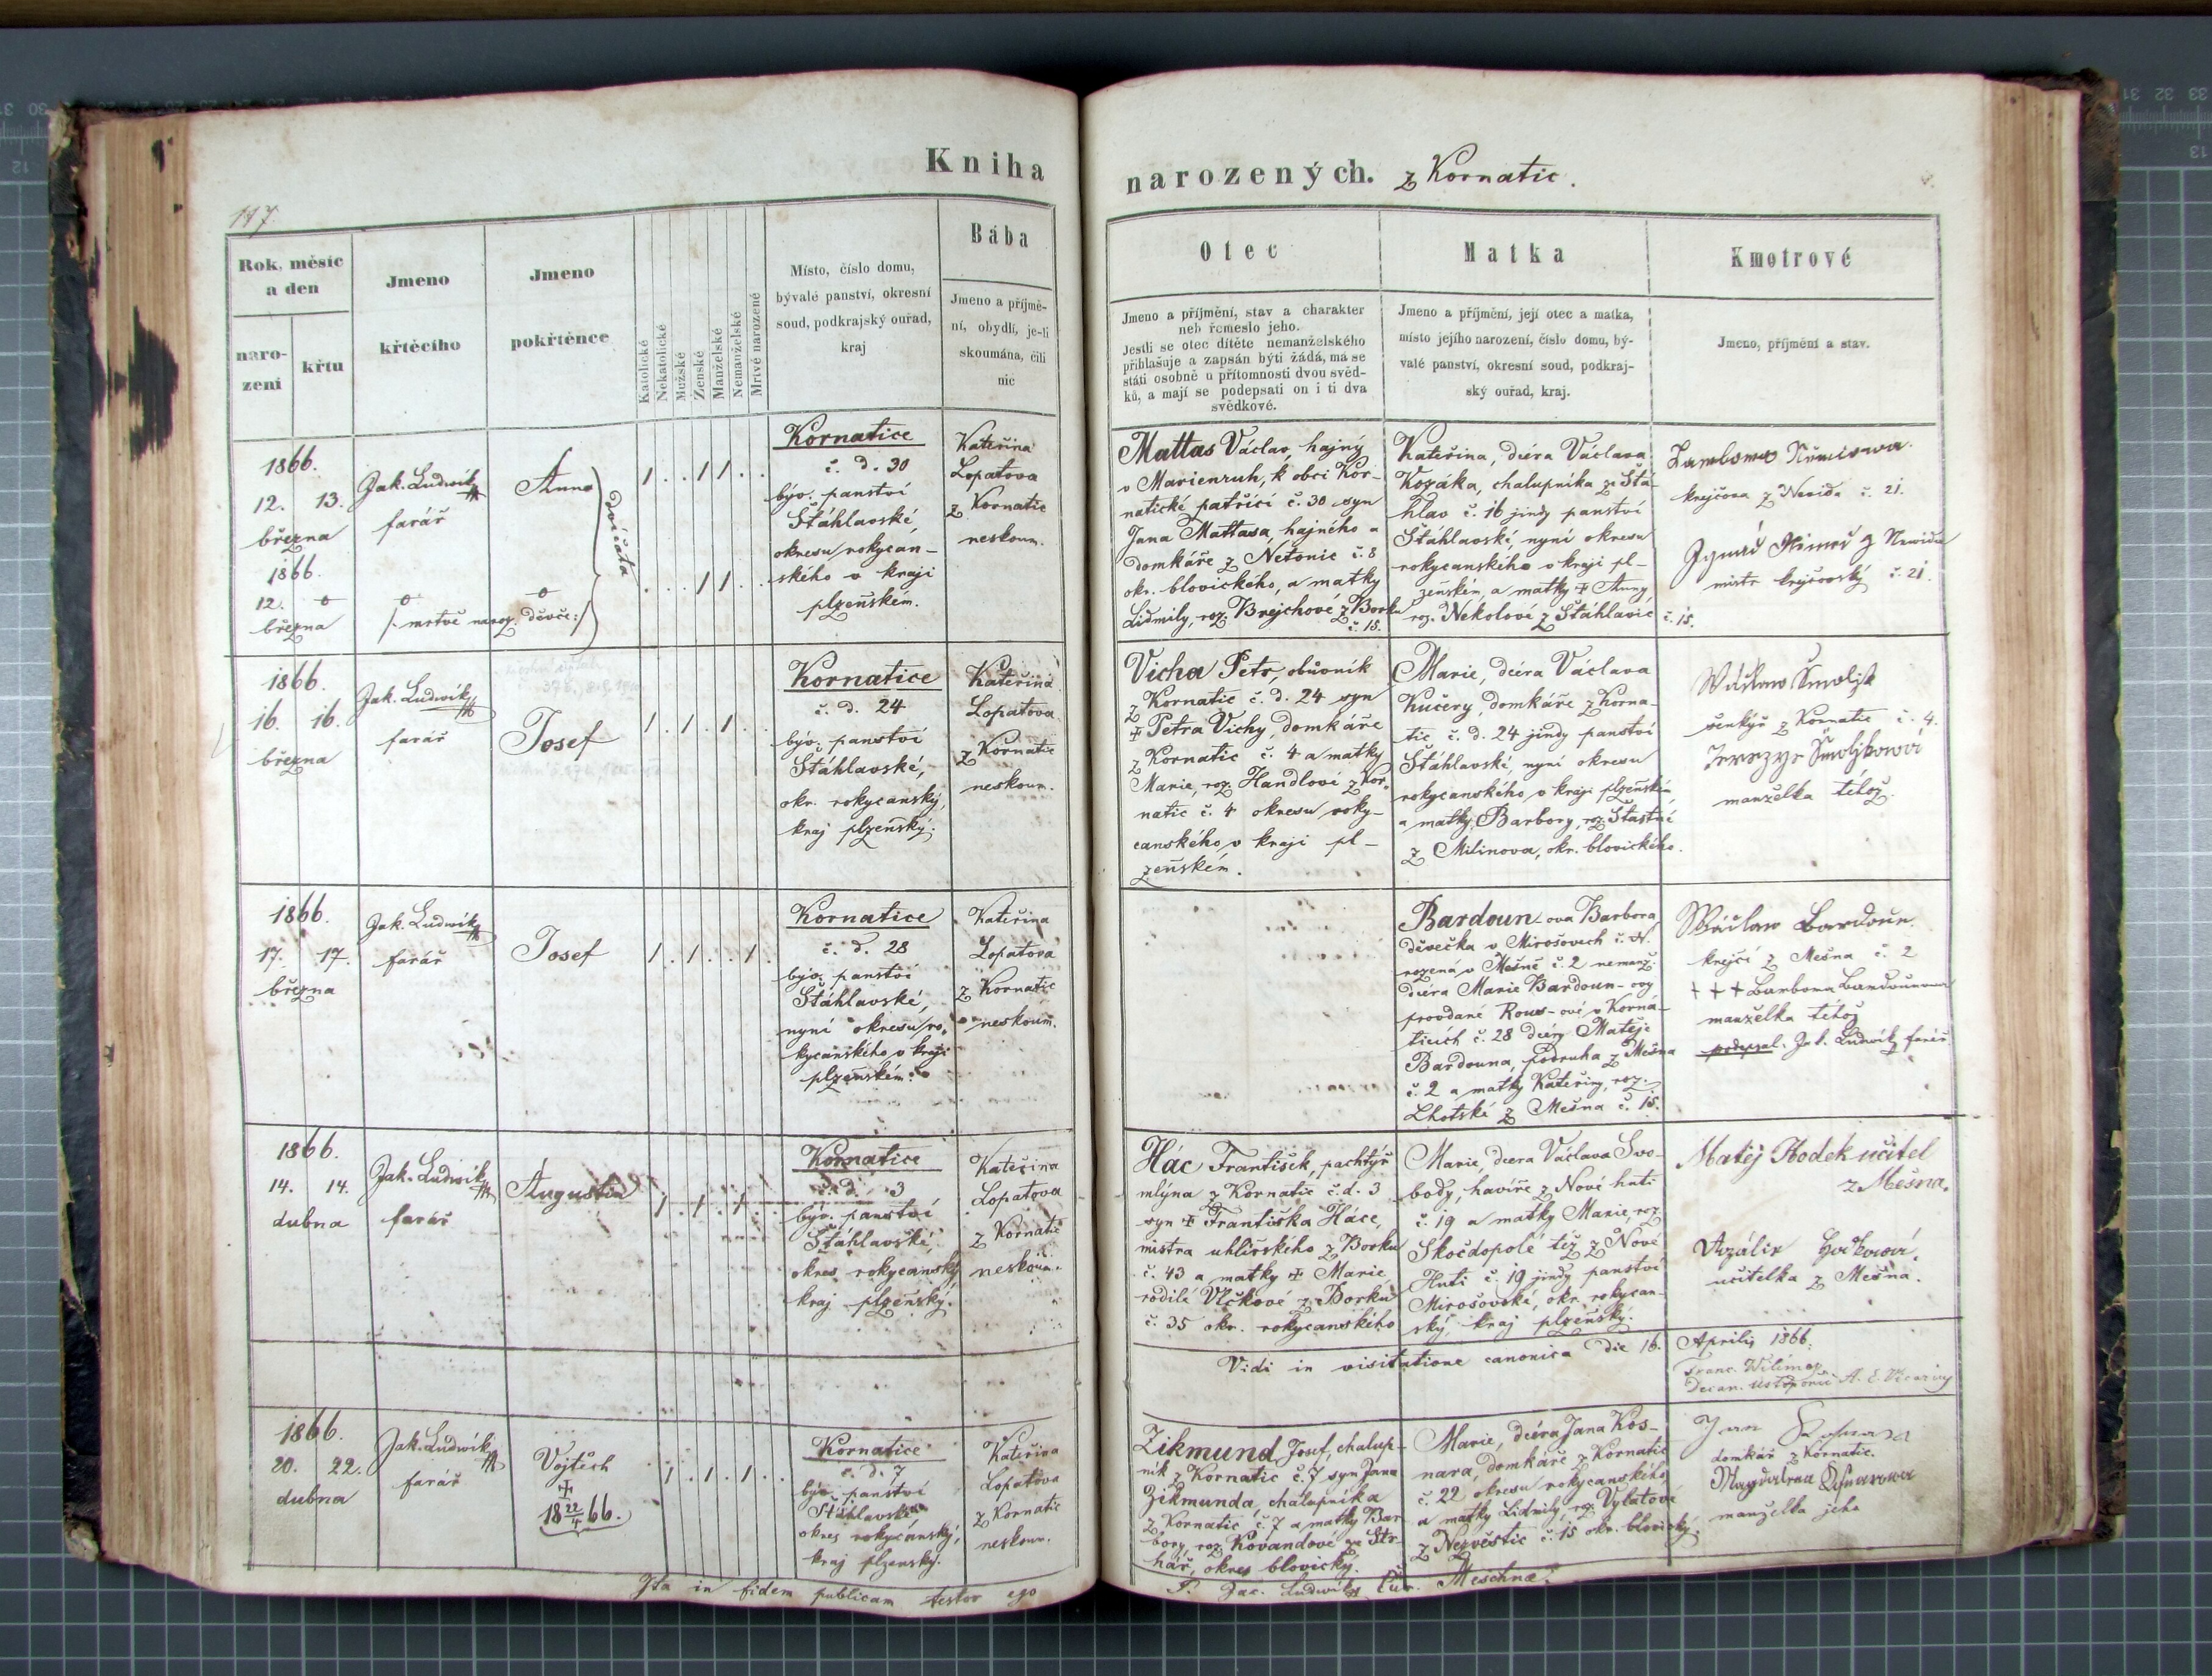 Kniha
narozených. z Kornatic.
117.
Rok, měsíc
a den
naro-
zení
křtu
Jmeno
křtěcího
Jmeno
pokřtěnce
Katolické
Nekatolické
Mužské
Ženské
Manželské
Nemanželské
Mrtvě narozené
Místo, číslo domu,
bývalé panství, okresní
soud, podkrajský ouřad,
kraj
Bába
Jmeno a příjmě-
ní, obydlí, je-li
skoumána, čili
nic
Otec
Jmeno a příjmění, stav a charakter
neb řemeslo jeho.
Jestli se otec dítěte nemanželského
přihlašuje a zapsán býti žádá, má se
státi osobně u přítomnosti dvou svěd-
ků, a mají se podepsati on i ti dva
svědkové.
Matka
Jmeno a příjmění, její otec a matka,
místo jejího narození, číslo domu, bý-
valé panství, okresní soud, podkraj-
ský ouřad, kraj.
Kmotrové
Jmeno, příjmění a stav.
1866.
12. 13.
března
1866.
12.
března
Jak. Ludwík
farář
Anna
dvojčata
/: mrtvě naroz. děvče :/
1 . . 1 1 . .
. . . 1 1 . .
Kornatice
č. d. 30
býv. panství
Štáhlavské,
okresu rokycan-
ského v kraji
plzeňském.
Kateřina
Lopatova
z Kornatic
neskoum.
Mattas Václav, hajný
v Marienruh, k obci Kor-
natické patřící č. 30 syn
Jana Mattasa, hajného a
domkáře z Netonic č. 8
okr. blovického, a matky
Lidmily, roz. Brejchové z Borku
č. 15.
Kateřina, dcera Václava
Kozáka, chalupníka ze Štá-
hlav č. 16 jindy panství
Štáhlavské, nyní okresu
rokycanského v kraji pl-
zeňském, a matky ✠ Anny,
roz. Nekolové z Štáhlavic č. 15.
krejčova z Nevida č. 21.
mistr krejčovský č. 21.
1866.
16. 16.
března
Jak. Ludwík
farář
Josef
1 . 1 . 1 . .
Kornatice
č. d. 24
býv. panství
Štáhlavské,
okr. rokycanský,
kraj plzeňský.
Kateřina
Lopatova
z Kornatic
neskoum.
Vicha Petr, obuvník
z Kornatic č. d. 24 syn
✠ Petra Vichy, domkáře
z Kornatic č. 4 a matky
Marie, roz. Handlové z Kor-
natic č. 4 okresu roky-
canského v kraji pl-
zeňském.
Marie, dcera Václava
Kučery, domkáře z Korna-
tic č. d. 24 jindy panství
Štáhlavské, nyní okresu
rokycanského v kraji plzeňském
a matky Barbory, roz. Šťastné
z Milinova, okr. blovického.
šenkýř z Kornatic č. 4.
manželka téhož.
1866.
17. 17.
března
Jak. Ludwík
farář
Josef
1 . 1 . . 1 .
Kornatice
č. d. 28
býv. panství
Štáhlavské,
nyní okresu ro-
kycanského v kraji
plzeňském.
Kateřina
Lopatova
z Kornatic
neskoum.
Bardoun-ova Barbora
děvečka v Mirošovech
rozená v Mešně č. 2 nemanž.
dcera Marie Bardoun-ovy
provdané Rous-ové v Korna-
ticích č. 28 dcery Matěje
Bardouna, podruha z Mešna
č. 2 a matky Kateřiny, roz.
Lhotské z Mešna č. 15.
Wáclaw Bardoun.
krejčí z Mešna č. 2
+ + + Barbora Bardounova
manželka téhož
podepsal. Jak. Ludwík farář.
1866.
14. 14.
dubna
Jak. Ludwík
farář
Augustin
1 . 1 . 1 . .
Kornatice
č. d. 3
býv. panství
Štáhlavské,
okres rokycanský
kraj plzeňský.
Kateřina
Lopatova
z Kornatic
neskoum.
Hác František, pachtýř
mlýna z Kornatic č. d. 3
syn ✠ Františka Háce,
mistra uhlířského z Borku
č. 43 a matky ✠ Marie
rodilé Vlčkové z Borku
č. 35 okr. rokycanského
Marie, dcera Václava Svo-
body, havíře z Nové huti
č. 19 a matky Marie, roz.
Skočdopolé též z Nové
Huti č. 19 jindy panství
Mirošovské, okr. rokycan-
ský, kraj plzeňský.
Matěj Hodek učitel
z Mešna.
učitelka z Mešna.
Vidi in visitatione canonica die 16. Aprilis 1866.
1866.
20. 22.
dubna
Jak. Ludwík
farář
Vojtěch
✠
18 22/4 66.
1 . 1 . 1 . .
Kornatice
č. d. 7
býv. panství
Štáhlavské
okres rokycanský,
kraj plzenský.
Kateřina
Lopatova
z Kornatic
neskoum.
Zikmund Josef, chalup-
ník z Kornatic č. 7 syn Jana
Zikmunda, chalupníka
z Kornatic č. 7 a matky Bar-
bory, roz. Kovandové
okres blovický.
Marie, dcera Jana Kos-
nara, domkáře z Kornatic
č. 22 okresu rokycanského
a matky Lidmily, roz. Vylatové
z Nezvěstic č. 15 okr. blovický.
domkář z Kornatic.
manželka jeho
Ita in fidem publicam testor ego
P. Jac. Ludwík Cur. Meschnae.